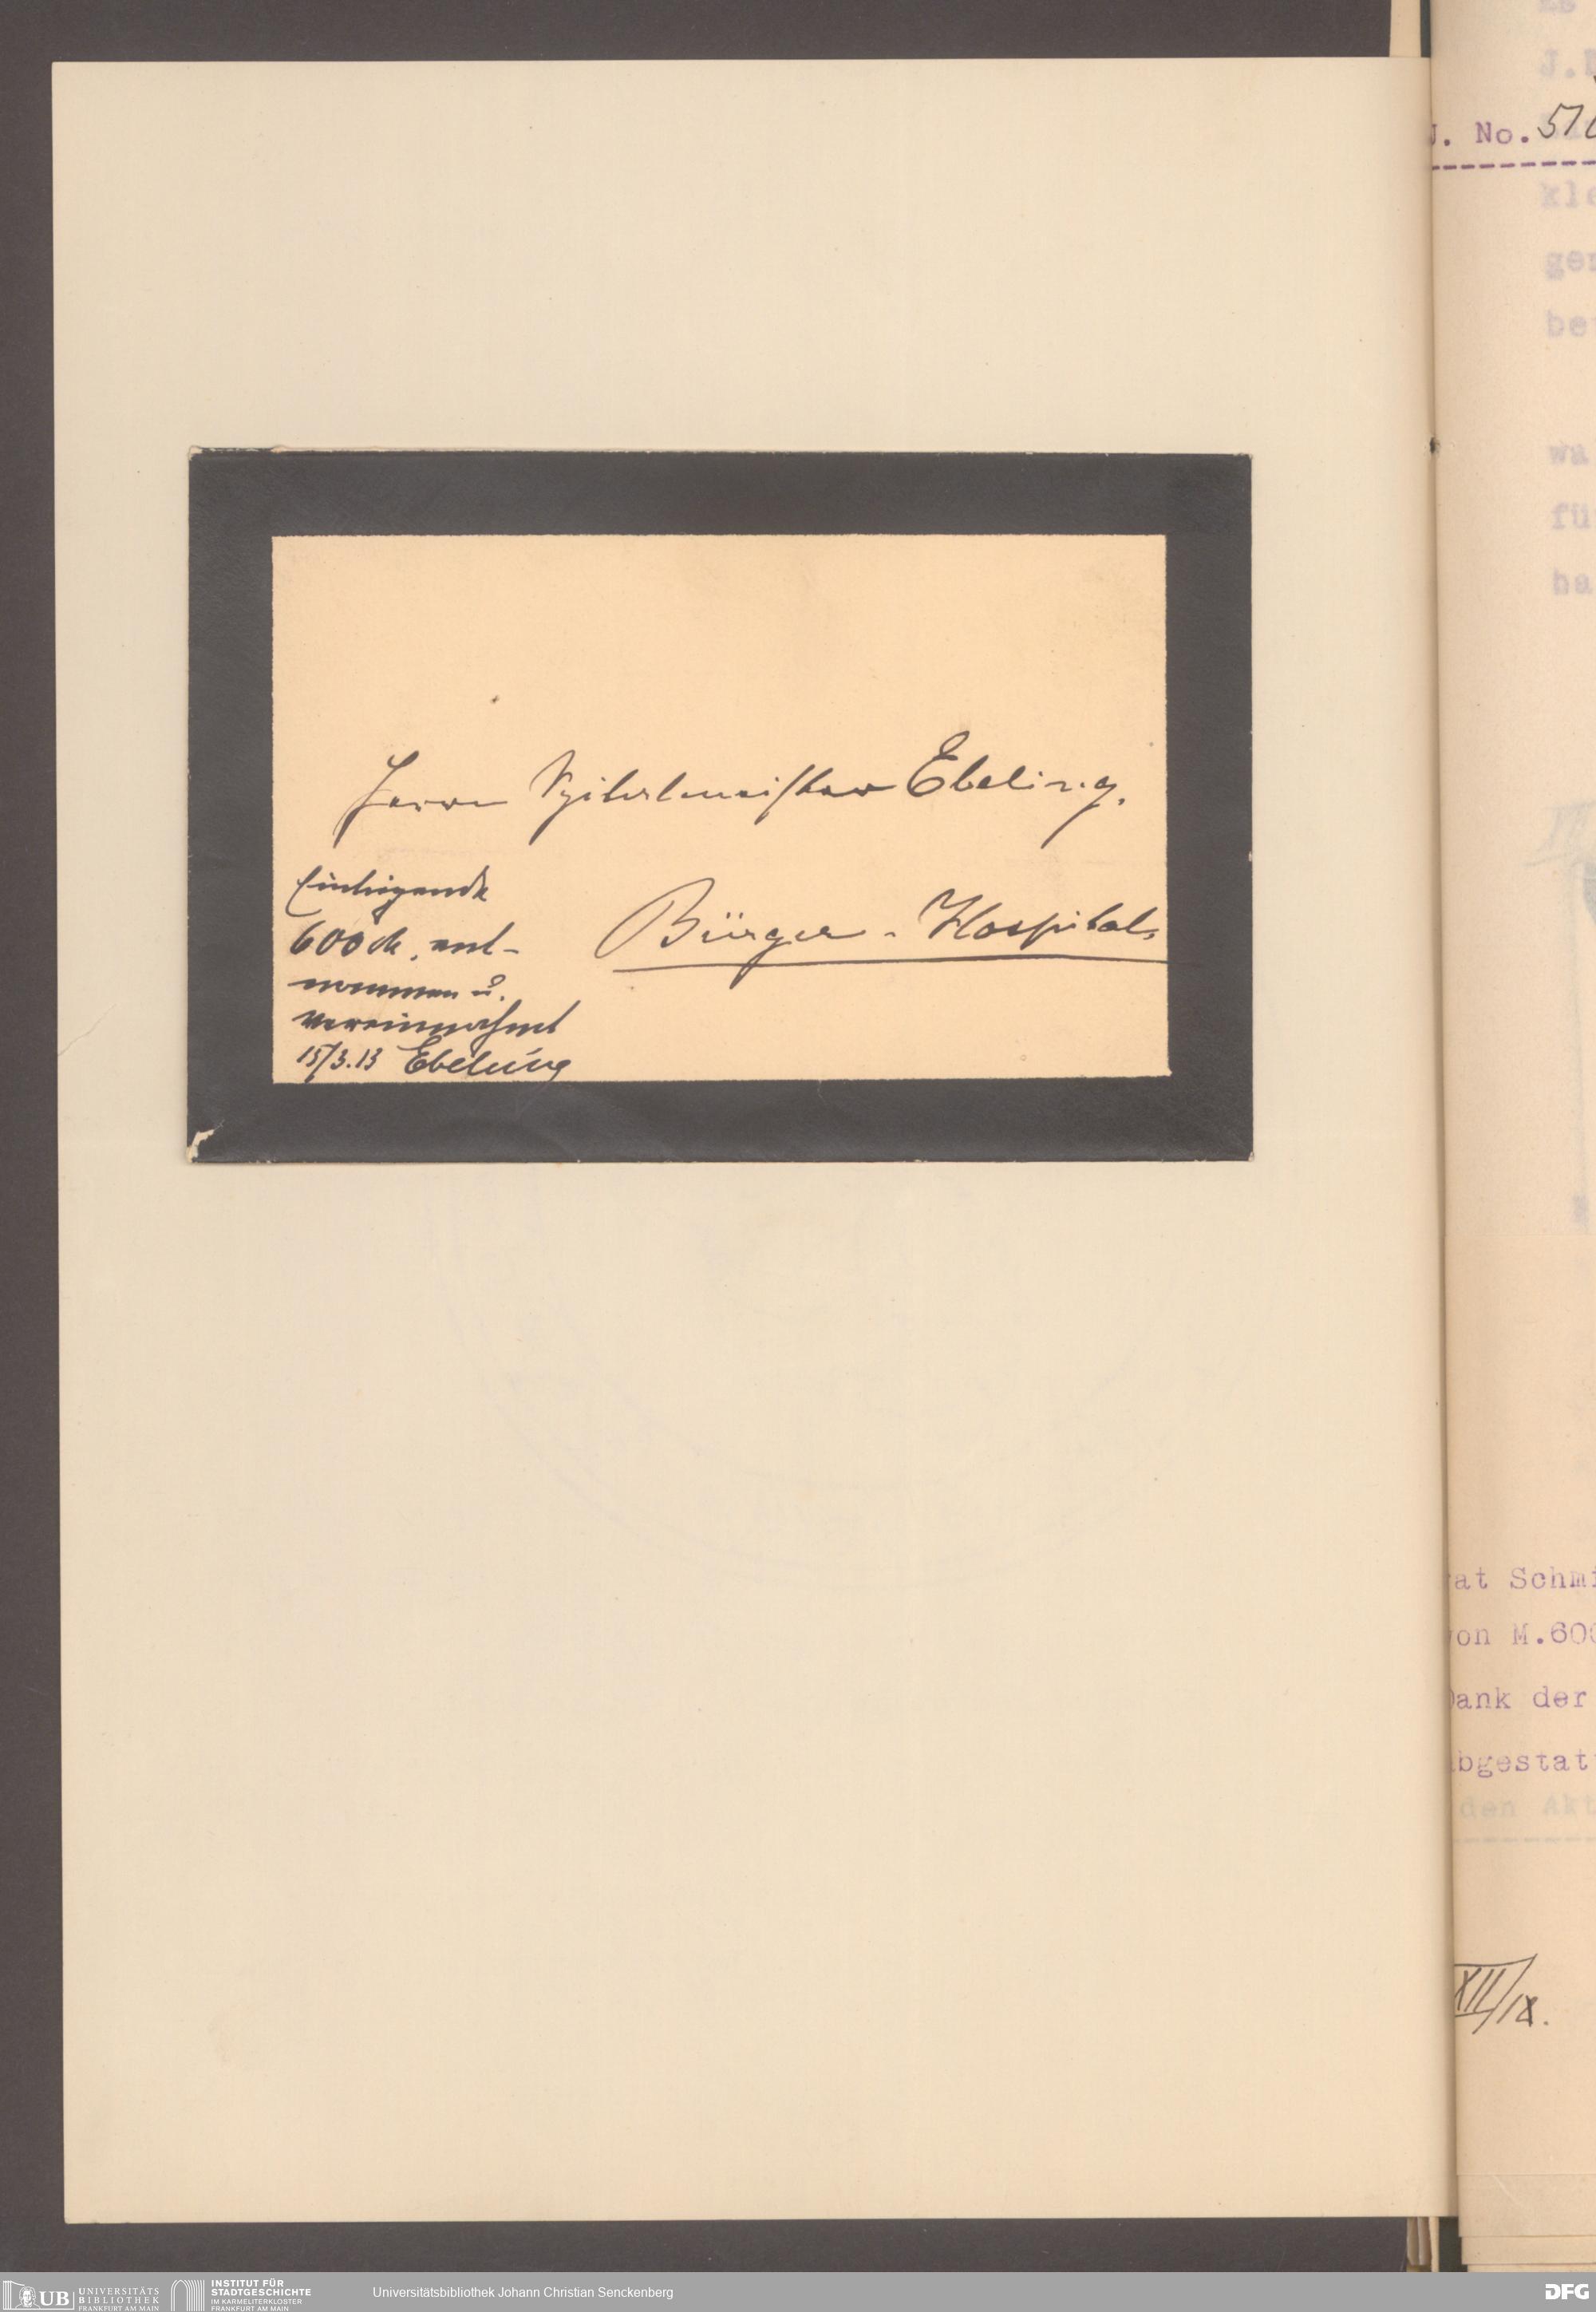 Herrn Spitalmeister Ebeling.
Bürger-Hospital.
Einliegende
600 M. ent-
nommen u.
vereinnahmt
15/3.13 Ebeling
J. No. 51
kle
ger
be
wa
fü
ha
at Schmi
on M.600
Dank der
bgestat
den Akt
XII/IX.
UB UNIVERSITÄTS
BIBLIOTHEK
FRANKFURT AM MAIN
INSTITUT FÜR
STADTGESCHICHTE
IM KARMELITERKLOSTER
FRANKFURT AM MAIN
Universitätsbibliothek Johann Christian Senckenberg
DFG